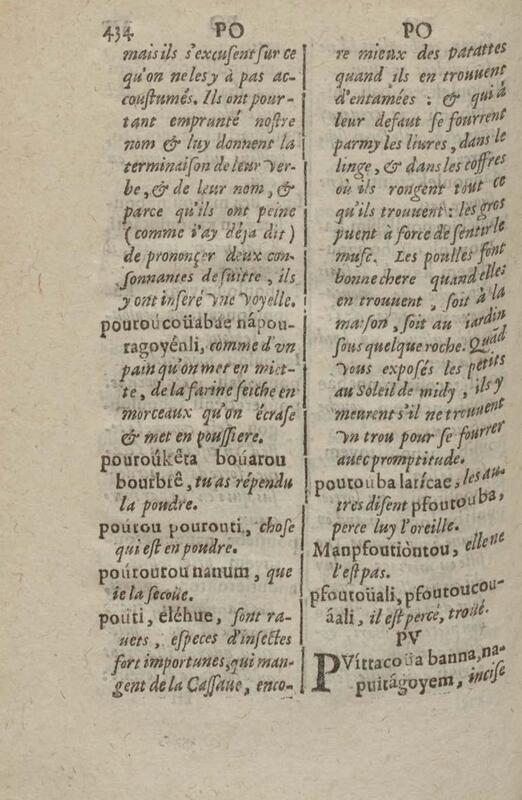 434 PO PO
mais ils s'excusent sur ce
qu'on ne les y à pas ac-
coustumés. Ils ont pour-
tant emprunté nostre
nom & luy donnent la
terminaison de leur Ver-
be, & de leur nom, &
parce qu'ils ont peine
(comme i'ay déja dit)
de prononçer deux con-
sonnantes de suitte, ils
y ont inseré Vne Voyelle.
poutoucoüabae nâpou-
ragoyénli, comme d'Vn
pain qu'on met en miet-
te, de la farine seiche en
morceaux qu'on écrase
& met en poussiere.
pouroúkêta boúarou
bourbrê, tu as répendu
la poudre.
poútou pourouti, chose
qui est en poudre.
poútourou nanum, que
ie la secoüe.
pouti, éléhue, sont ra-
uets, especes d'insectes
fort importunes, qui man-
gent de la Cassaue, enco-
re mieux des patattes
quand ils en trouuent
d'entamées : & qui à
leur defaut se fourrent
parmy les liures, dans le
linge, & dans les coffres
où ils rongent tout ce
qu'ils trouuent : les gros
puent à force de sentir le
musc. Les poulles font
bonne chere quand elles
en trouuent, soit à la
maison, soit au iardin
sous quelque roche. Quãd
Vous exposés les petits
au Soleil de midy, ils y
meurent s'il ne treuuent
Vn trou pour se fourrer
auec promptitude.
poutouba latícae, les au-
tres disent pfoutouba,
perce luy l'oreille.
Manpfoutiöntou, elle ne
l'est pas.
pfoutoüali, pfoutoucou-
áali, il est percé, troüé.
PV
PVíttacoüa banna, na-
puitágoyem, incise